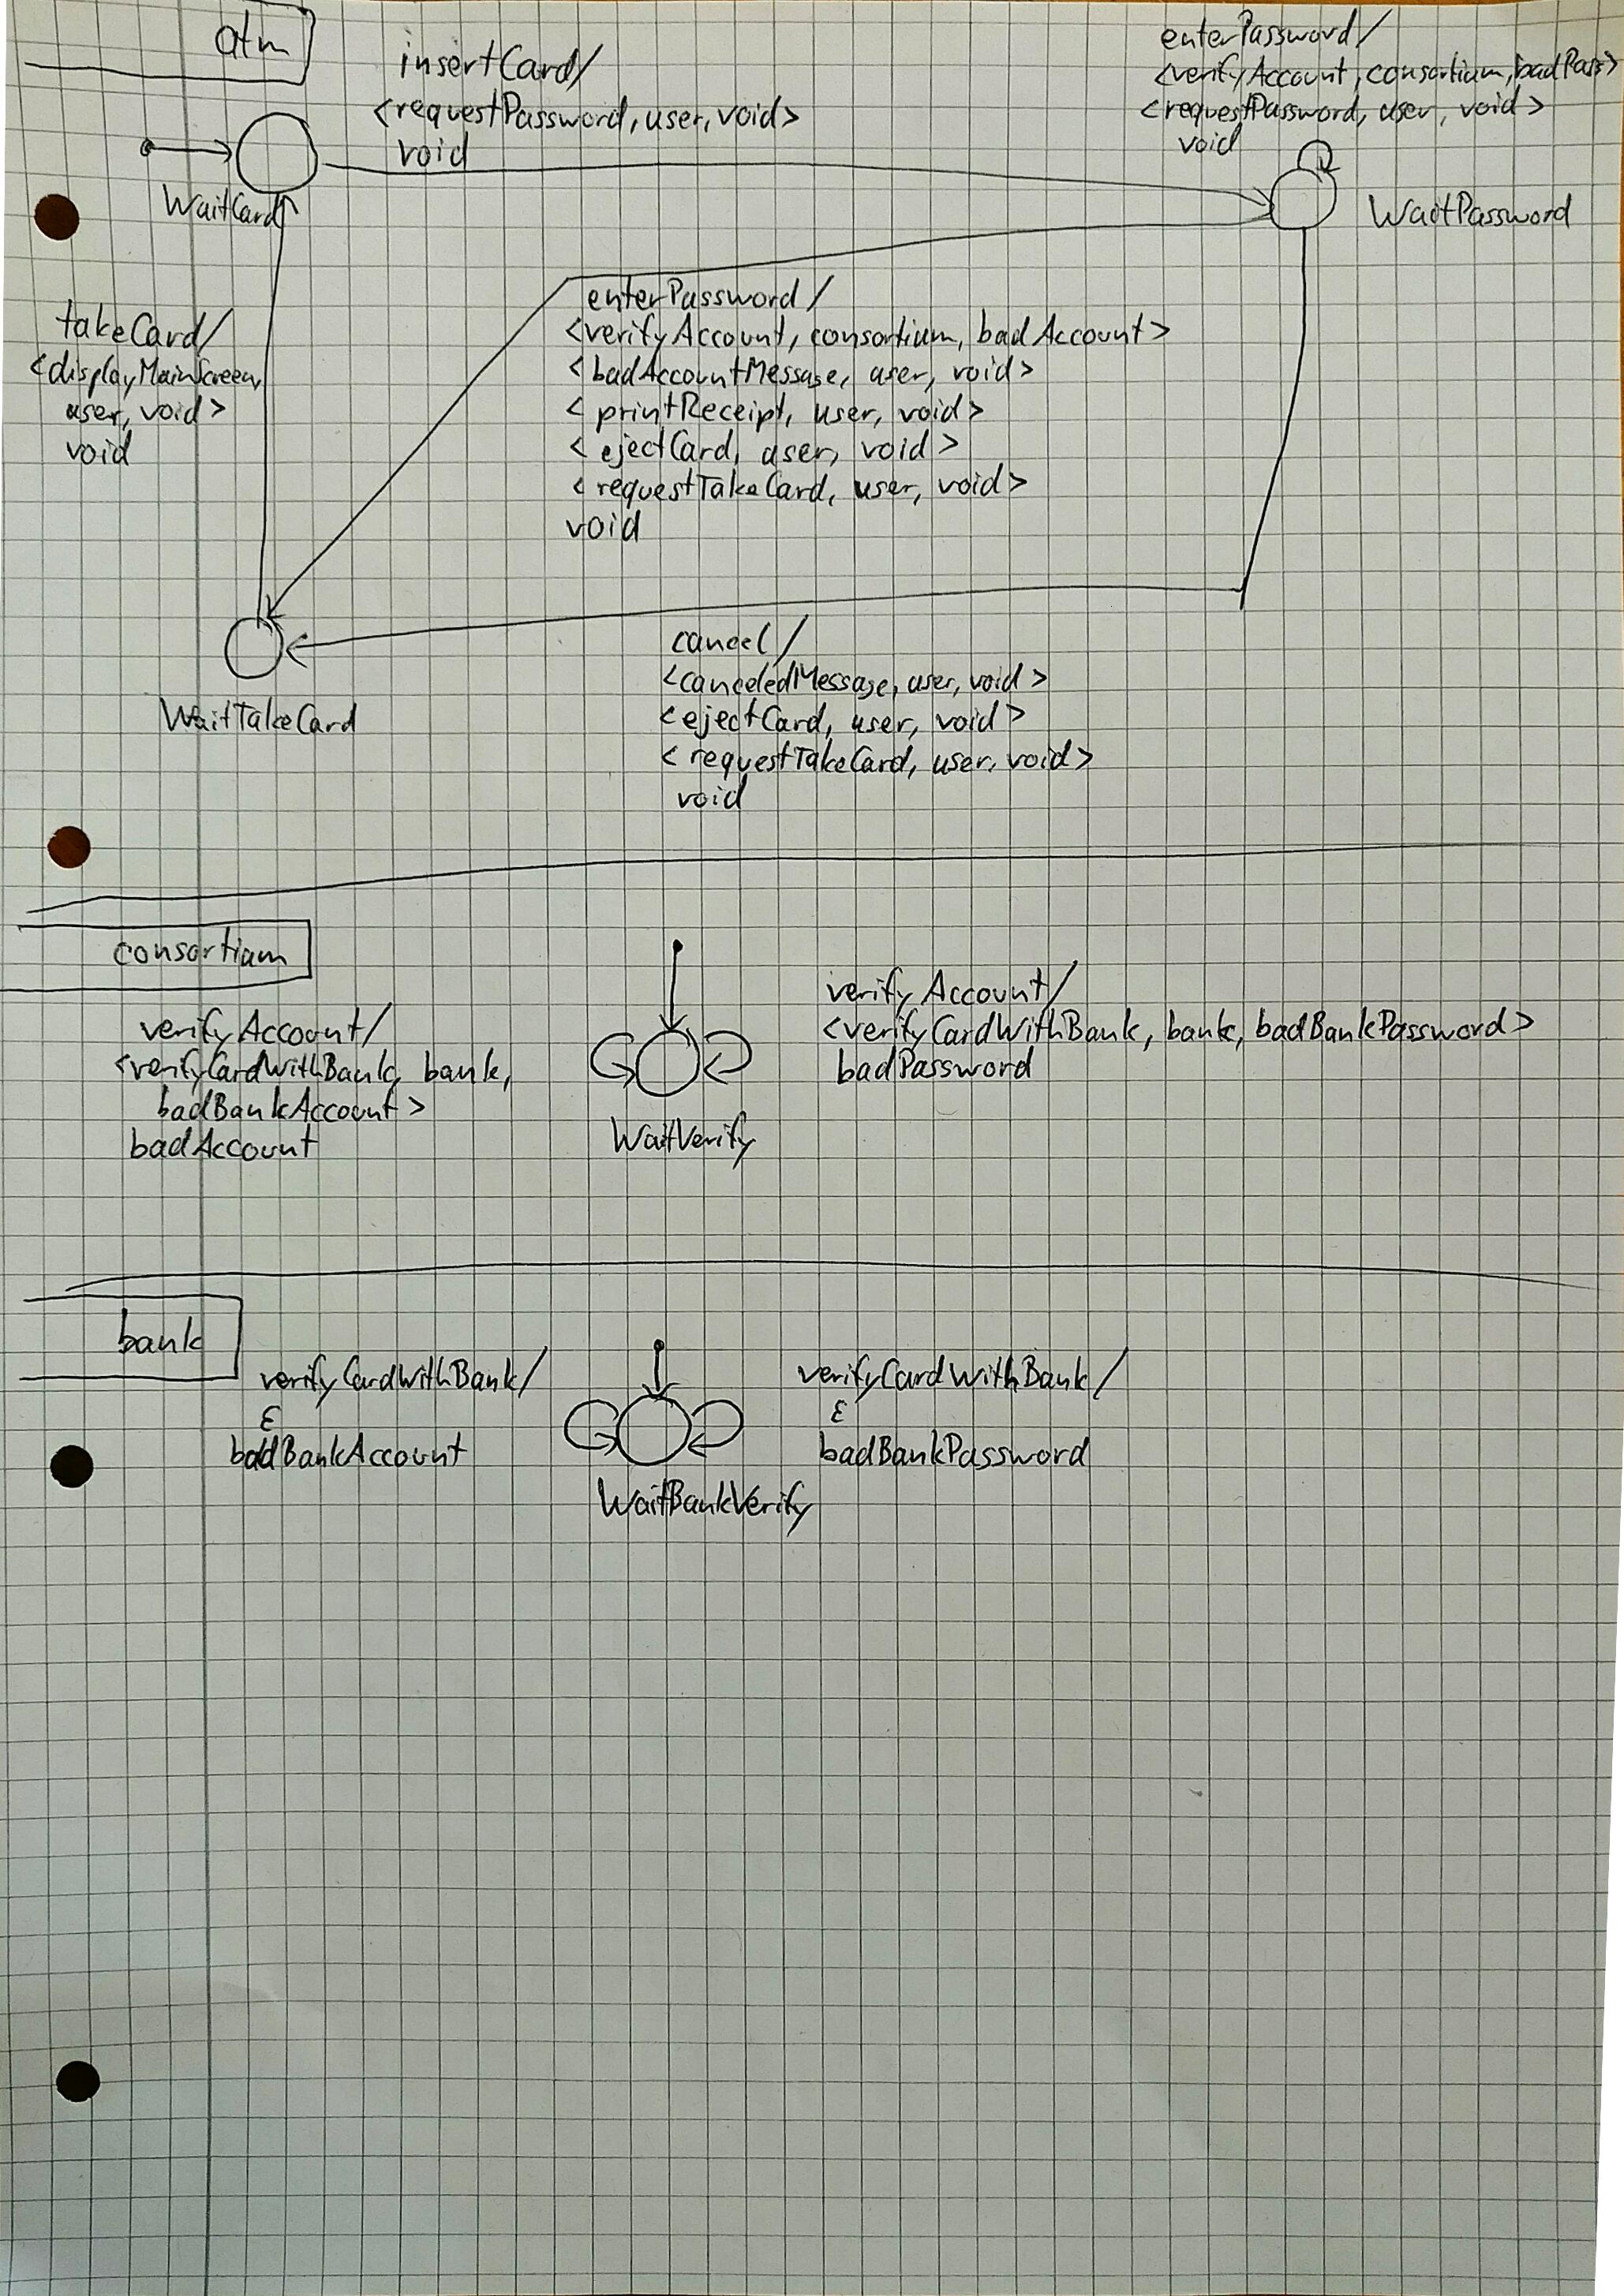 atm
insertCard/
<requestPassword, user, void>
void
enterPassword/
<verifyAccount, consortium, badPass>
<requestPassword, user, void>
void
WaitCard
WaitPassword
takeCard/
<displayMainScreen,
user, void>
void
enterPassword/
<verifyAccount, consortium, badAccount>
<badAccountMessage, user, void>
<printReceipt, user, void>
<ejectCard, user, void>
<requestTakeCard, user, void>
void
WaitTakeCard
cancel/
<canceledMessage, user, void>
<ejectCard, user, void>
<requestTakeCard, user, void>
void
consortium
verifyAccount/
<verifyCardWithBank, bank,
badBankAccount>
badAccount
WaitVerify
verifyAccount/
<verifyCardWithBank, bank, badBankPassword>
badPassword
bank
verifyCardWithBank/
ε
badBankAccount
WaitBankVerify
verifyCardWithBank/
ε
badBankPassword